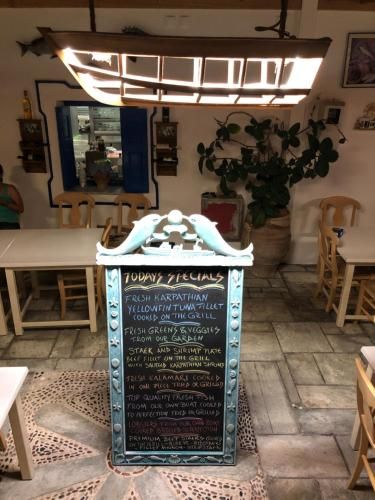 TODAYS SPECIALS
FRESH KARPATHIAN
YELLOWFIN TUNA FILLET
COOKED ON THE GRILL
FRESH GREENS & VEGGIES
FROM OUR GARDEN
STAEK AND SHRIMP PLATE
BEEF FILLET ON THE GRILL
WITH SAUTEED KARPATHIAN SHRIMP
FRESH KALAMARI COOKED
IN ONE PIECE FRIED OR GRILLED
TOP QUALITY FRESH FISH
FROM OUR OWN BOAT COOKED
TO PERFECTION FRIED OR GRILLED
LOBSTERS FROM OUR OWN BOAT
COOKED
PREMIUM BEEF STAEKS